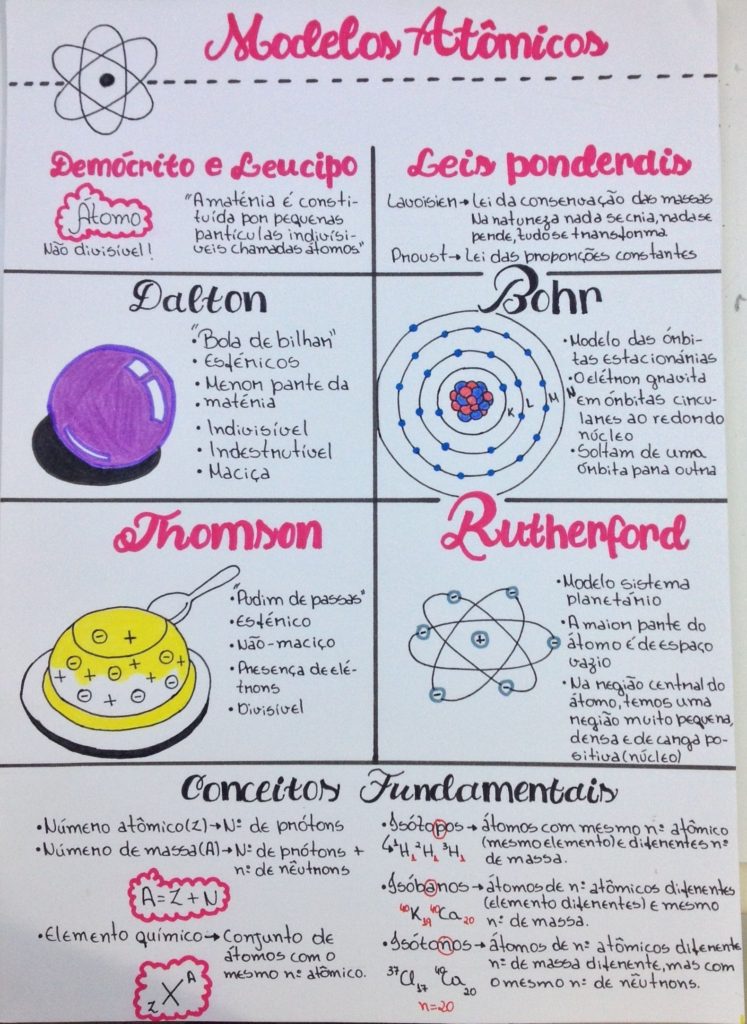 Modelos Atômicos
Demócrito e Leucipo
Átomo
Não divisível!
"A matéria é consti-
tuída por pequenas
partículas indivisí-
veis chamadas átomos"
Leis ponderais
Lavoisier → Lei da conservação das massas
Na natureza nada se cria, nada se
perde, tudo se transforma
Proust → Lei das proporções constantes
Dalton
• "Bola de bilhar"
• Esféricos
• Menor parte da
• matéria
• Indivisível
• Indestrutível
• Maciça
Bohr
K L M N
• Modelo das órbi-
tas estacionárias
• O elétron gravita
em órbitas circu-
lares ao redor do
núcleo
• Saltam de uma
órbita para outra
Thomson
• "Pudim de passas"
• Esférico
• Não-maciço
• Presença de elé-
trons
• Divisível
⊖ +
⊖ + ⊖ + ⊖ +
+ + ⊖ + ⊖
⊖ + ⊖
Rutherford
⊖ ⊖
⊖ + ⊖
⊖ ⊖
• Modelo sistema
planetário
• A maior parte do
átomo é de espaço
vazio
• Na região central do
átomo, temos uma
região muito pequena,
densa e de carga po-
sitiva (núcleo)
Conceitos Fundamentais
• Número atômico (Z) → Nº de prótons
• Número de massa (A) → Nº de prótons +
nº de nêutrons
A = Z + N
• Elemento químico → Conjunto de
átomos com o
mesmo nº atômico.
zXᴬ
• Isótopos → átomos com mesmo nº atômico
(mesmo elemento) e diferentes nº
de massa.
↳ ¹H₁ ²H₁ ³H₁
• Isóbaros → átomos de nº atômicos diferentes
(elemento diferentes) e mesmo
nº de massa.
⁴⁰K₁₉ ⁴⁰Ca₂₀
• Isótonos → átomos de nº atômicos diferente
nº de massa diferente, mas com
o mesmo nº de nêutrons.
³⁷Cl₁₇ ⁴⁰Ca₂₀
n=20